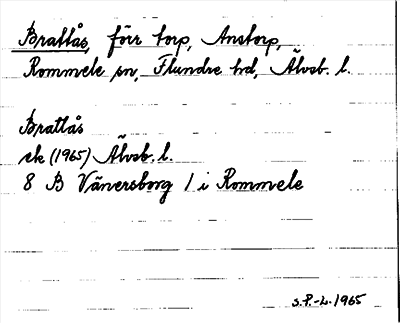 Brattås, förr torp, Anstorp,
Rommele sn, Flundre hd, Älvsb. l.
Brattås
ek (1965) Älvsb. l.
8 B Vänersborg 1 i Rommele
S.P.-L. 1965